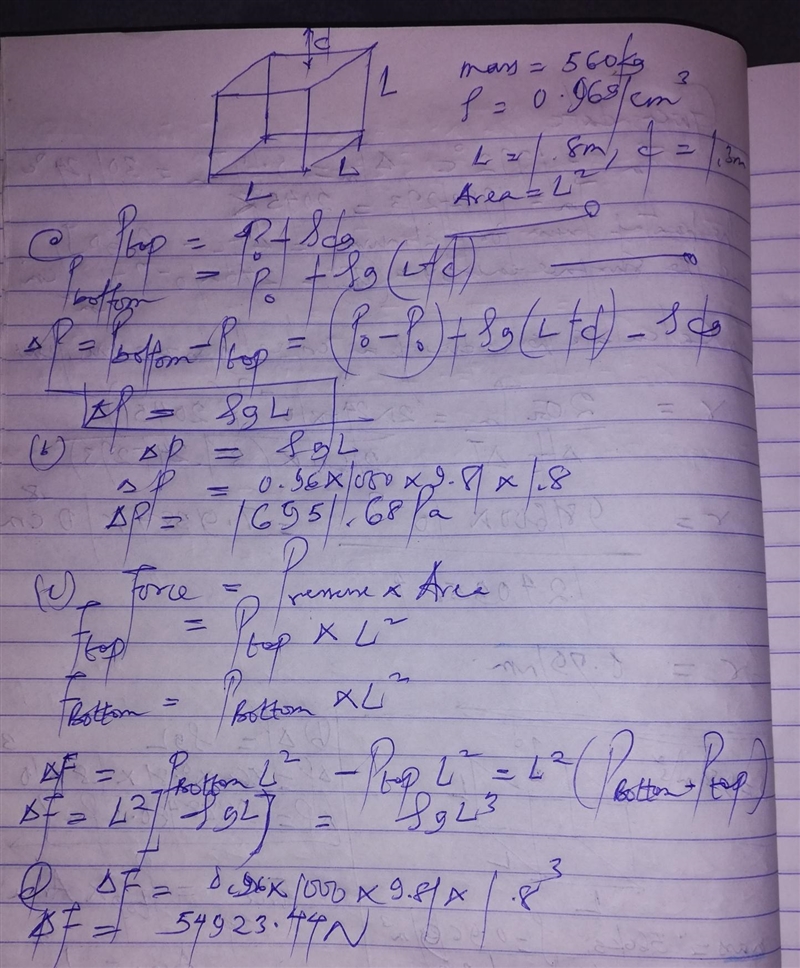 d
L
L
L
mass = 560kg
ρ = 0.96g/cm³
L = 1.8m, d = 1.3m
Area = L²
P_top = P₀ + ρdg
P_bottom = P₀ + ρg(L+d)
ΔP = P_bottom - P_top = (P₀ - P₀) + ρg(L+d) - ρdg
ΔP = ρgL
(b) ΔP = ρgL
ΔP = 0.96×1000×9.81×1.8
ΔP = 16951.68Pa
(c) Force = Pressure × Area
F_top = P_top × L²
F_Bottom = P_Bottom × L²
ΔF = P_Bottom L² - P_top L² = L² (P_Bottom - P_top)
ΔF = L² [ρgL] = ρgL³
d) ΔF = 0.96×1000×9.81×1.8³
ΔF = 54923.44N